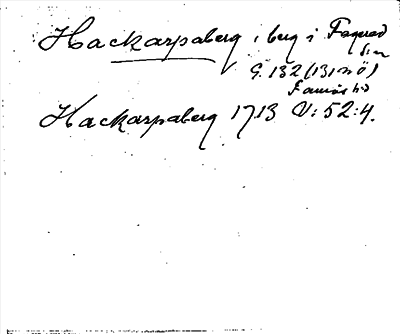 Hackarpaberg, berg i Fagered
sn
G. 132 (131 n ö)
Faurås hd
Hackarpaberg 1713 V:52:4.